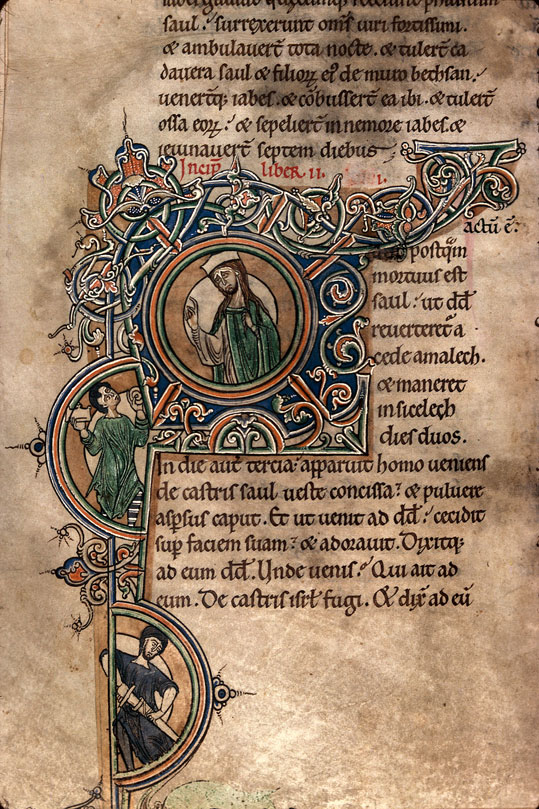 saul. surrexerunt om̄s uiri fortissimi.
& ambulauer̄t tota nocte. & tuler̄t ca
dauera saul & filioꝝ eiꝰ de muro bethsan.
uenerūtqꝫ iabes. & cōbusser̄t ea ibi. & tuler̄t
ossa eoꝝ. & sepelier̄t in nemore iabes. &
ieiunauer̄t septem diebus
Incip̄ liber ii. .i.
actū ē.
postq̄m
mortuus est
saul. ut dd̄
reuerteret̄ a
cede amalech.
& maneret
in sicelech
dies duos.
In die aut̄ tercia. apparuit homo ueniens
de castris saul ueste concissa. & puluere
asp̄sus caput. Et ut uenit ad dd̄. cecidit
sup̄ faciem suam. & adorauit. Dixitqꝫ
ad eum dd̄. Unde uenis. Qui ait ad
eum. De castris isrł fugi. Et dix̄ ad eū